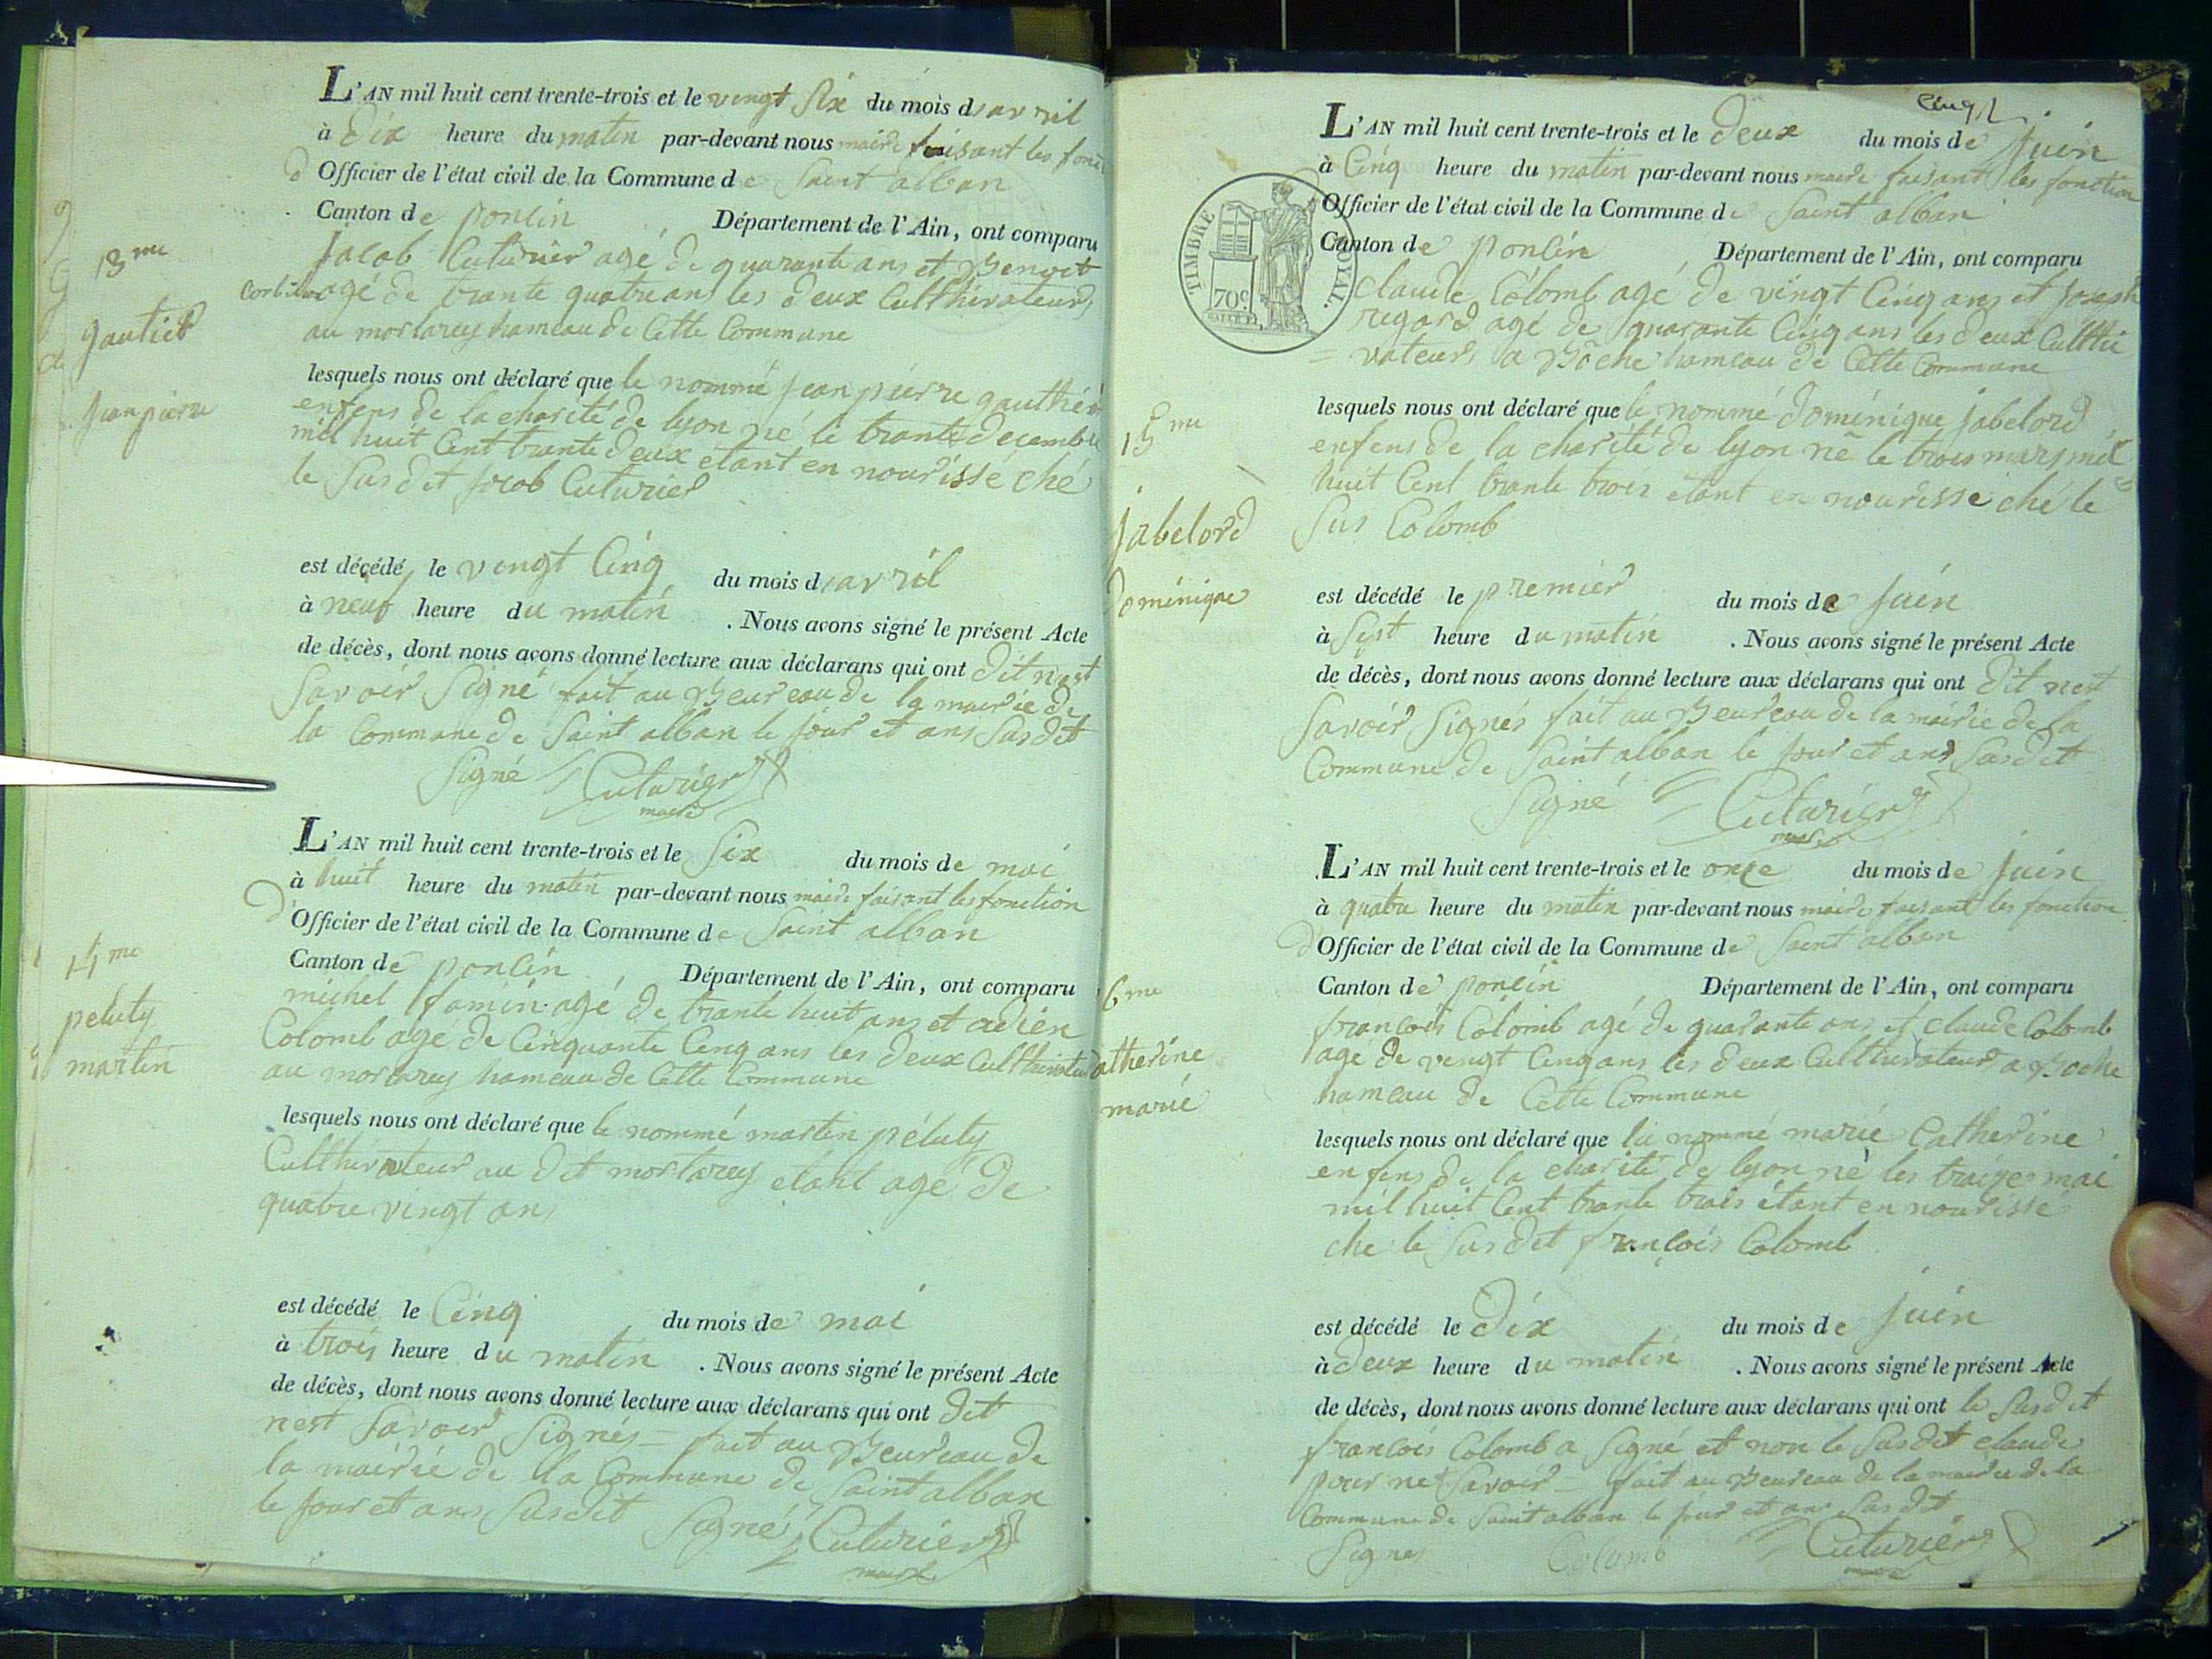 L'AN mil huit cent trente-trois et le vingt six du mois d'avril
à dix heure du matin par-devant nous maire faisant les fonc
d Officier de l'état civil de la Commune de Saint alban
Canton de poncin Département de l'Ain, ont comparu
Jacob Cuturier agé de quarante ans et Benoit
agé de trante quatre ans les deux Culthivateurs
au mortarey hameau de Cette Commune
13me
gautier
jean pierre
lesquels nous ont déclaré que le nommé jean pierre gauthier
enfens de la charité de lyon né le trante decembre
mil huit Cent trante deux etant en nourisse ché
le Susdit jacob Cuturier
est décédé le vingt Cinq du mois d'avril
à neuf heure du matin . Nous avons signé le présent Acte
de décès, dont nous avons donné lecture aux déclarans qui ont dit nest
Savoir Signé fait au Beureau de la mairie de
la Commune de Saint alban le jour et ans Susdit
Signé Cuturier
maire
L'AN mil huit cent trente-trois et le Six du mois de mai
à huit heure du matin par-devant nous maire faisant les fonction
d'Officier de l'état civil de la Commune de Saint alban
Canton de poncin Département de l'Ain, ont comparu
michel famin agé de trante huit ans et
Colomb agé de Cinquante Cinq ans les deux Culthivateur
au mortarey hameau de Cette Commune
14me
peluty
martin
lesquels nous ont déclaré que le nommé martin péluty
Culthivateur au dit mortarey etant agé de
quatre vingt ans
est décédé le Cinq du mois de mai
à trois heure du matin . Nous avons signé le présent Acte
de décès, dont nous avons donné lecture aux déclarans qui ont dit
nest Savoir Signés = fait au Beureau de
la mairie de la Commune de Saint alban
le jour et ans Susdit Signé Cuturier
maire
Cinq
L'AN mil huit cent trente-trois et le deux du mois de juin
à Cinq heure du matin par-devant nous maire faisant les fonction
Officier de l'état civil de la Commune de Saint alban
Canton de poncin Département de l'Ain, ont comparu
TIMBRE ROYAL.
70c
claude Colomb agé de vingt Cinq ans et joseph
regard agé de quarante Cinq ans les deux Culthi
= vateurs a Bôche hameau de Cette Commune
15me
jabelord
dominique
lesquels nous ont déclaré que le nommé dominique jabelord
enfens de la charité de lyon né le trois mars mil
huit Cent trante trois étant en nourisse ché le
Sus Colomb
est décédé le premier du mois de juin
à Sept heure du matin . Nous avons signé le présent Acte
de décès, dont nous avons donné lecture aux déclarans qui ont dit nest
Savoir Signés fait au Beureau de la mairie de la
Commune de Saint alban le jour et ans Susdit
Signé Cuturier
maire
L'AN mil huit cent trente-trois et le onze du mois de juin
à quatre heure du matin par-devant nous maire faisant les fonction
d'Officier de l'état civil de la Commune de Saint alban
Canton de poncin Département de l'Ain, ont comparu
françois Colomb agé de quarante ans et claude Colomb
agé de vingt Cinq ans les deux Culthivateurs a Boche
hameau de Cette Commune
6me
atherine
marie
lesquels nous ont déclaré que la nommé marie Catherine
enfens de la charité de lyon né les traize mai
mil huit Cent trante trois étant en nourisse
che le Susdit françois Colomb
est décédé le dix du mois de juin
à deux heure du matin . Nous avons signé le présent Acte
de décès, dont nous avons donné lecture aux déclarans qui ont le Susdit
françois Colomb a Signé et non le Susdit claude
pour ne Savoir = fait au Beureau de la mairie de la
Commune de Saint alban le jour et ans Susdit
Signer Colomb Cuturier